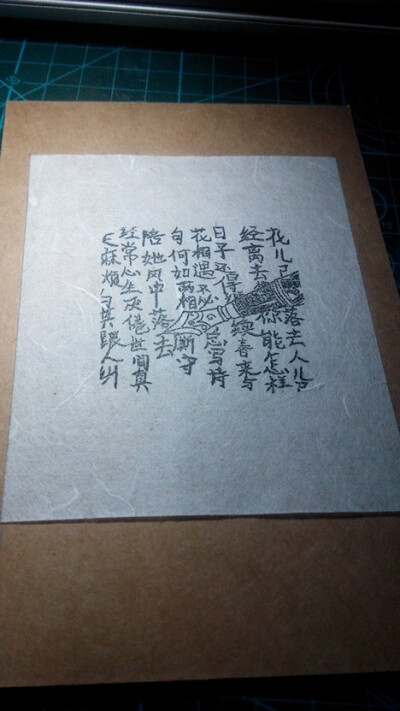 花儿已落去人儿已
经离去你能怎样
日子还得续春来与
花相遇不必总写诗
句何如两相厮守
陪她风中落去
经常心生灰倦世间真
麻烦与其跟人纠